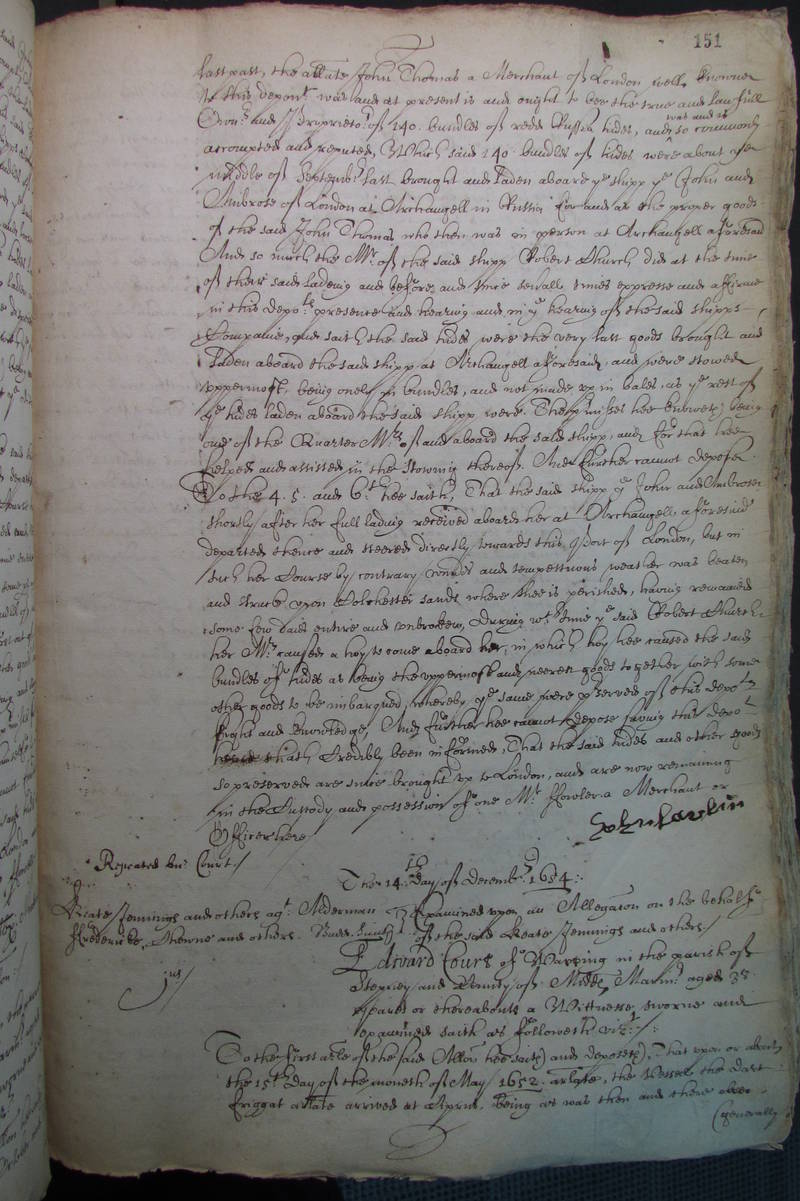 151
last past, the arlate John Thomas a Merchant of London well knowne
to this depont was and at present is and ought to bee the true and lawfull
Ownr and Proprietor of 140 bundles of redd Russia hides, and was and is so commonly
accompted and reputed, Which said 140 bundles of hides were about the
middle of Septembr last brought and laden aboard ye shipp ye John and
Ambrose of London at Archangell in Russia for and as the proper goods
of the said John Thomas who then was in person at Archangell aforesaid
And so much the Mr of the said shipp Robert Church did at the time
of their said ladeing and before, and since severall times expresse and affirme
in this depots presence and hearing and in ye hearing of the said shipps
Companie, and saith the said hides were the very last goods brought and
laden aboard the said shipp at Archangell aforesaid, and were stowed
uppermost, being onely in bundles, and not made up in bales, as ye rest of
ye hides laden aboard the said shipp were. The premisses hee knoweth being
one of the Quarter Mrs of and aboard the said shipp, and for that hee
helped and assisted in the stowing thereof. And further cannot depose.
To the 4. 5. and 6th hee saith, That the said shipp ye John and Ambrose
shortly after her full lading received aboard her at Archangell aforesaid
departed thence and steered directly towards this Port of London, but in
such her Course by contrary winds and tempestuous weather was beaten
and struck upon Colchester sands where shee is perished, having remained
some few daies entire and unbroken, During wch time ye said Robert Church
her Mr caused a hoy to come aboard her, in which hoy hee caused the said
bundles of hides as being the uppermost and neerest goods together with some
other goods to be imbarqued, whereby ye same were preserved of this depots
sight and knowledge, And further hee cannot depose saving this depot
hath credibly been informed, That the said hides and other goods
so preserved are since brought up to London, and are now remaining
in the Custody and possession of one Mr Fowler a Merchant or
Officer here
Repeated in Court./
The 14th Day of Decembr 1654.
Keate Jennings and others agt Alderman
Frederick, Thowne and others.
Examined upon an Allegacon on the behalfe
of the said Keate Jennings and others./
jus/
Edward Cours of Wapping in the parish of
Stepney and County of Middx Marinr aged 38
yeares or thereabouts a Wittnesse sworne and
examined saith as followeth, vizt./
To the first arle of the said Allon hee saith and deposeth, That upon or about
the 15th day of the moneth of May 1652 arlate, the Vessell the Dart
friggat arlate arrived at Ciprus, being as was then and there
generally